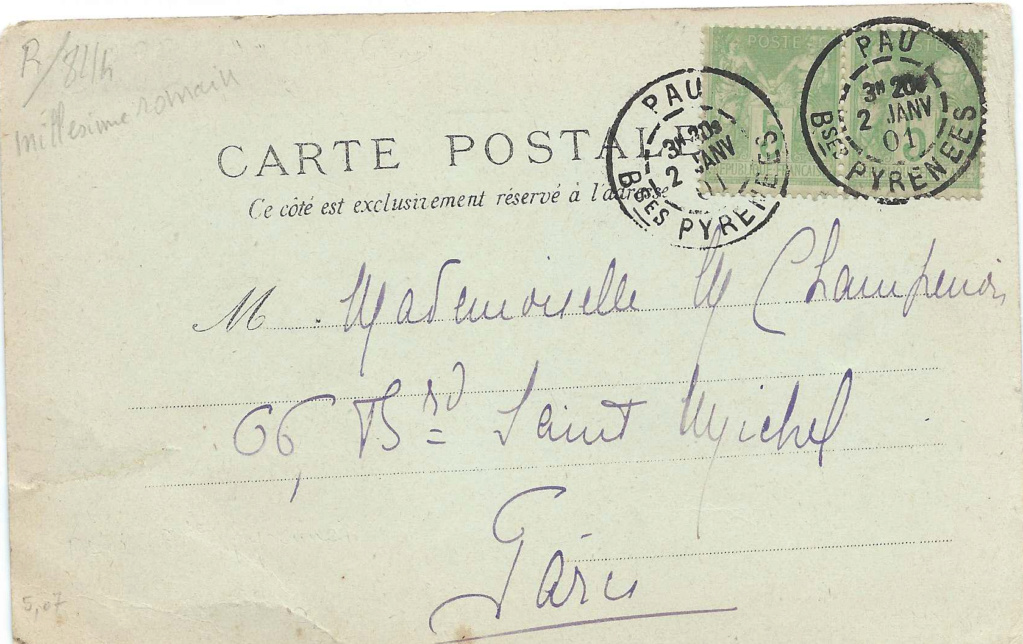 R/
millesime romain
POSTE
PAU
3H 20S
2 JANV
01
BSES PYRENEES
5
REPUBLIQUE FRANCAISE
PAU
3H 20
2 JANV
01
BSES PYRENEES
5
CARTE POSTALE
Ce côté est exclusivement réservé à l'adresse
M. Mademoiselle M Champenois
66, Brd Saint Michel
Paris
5,07